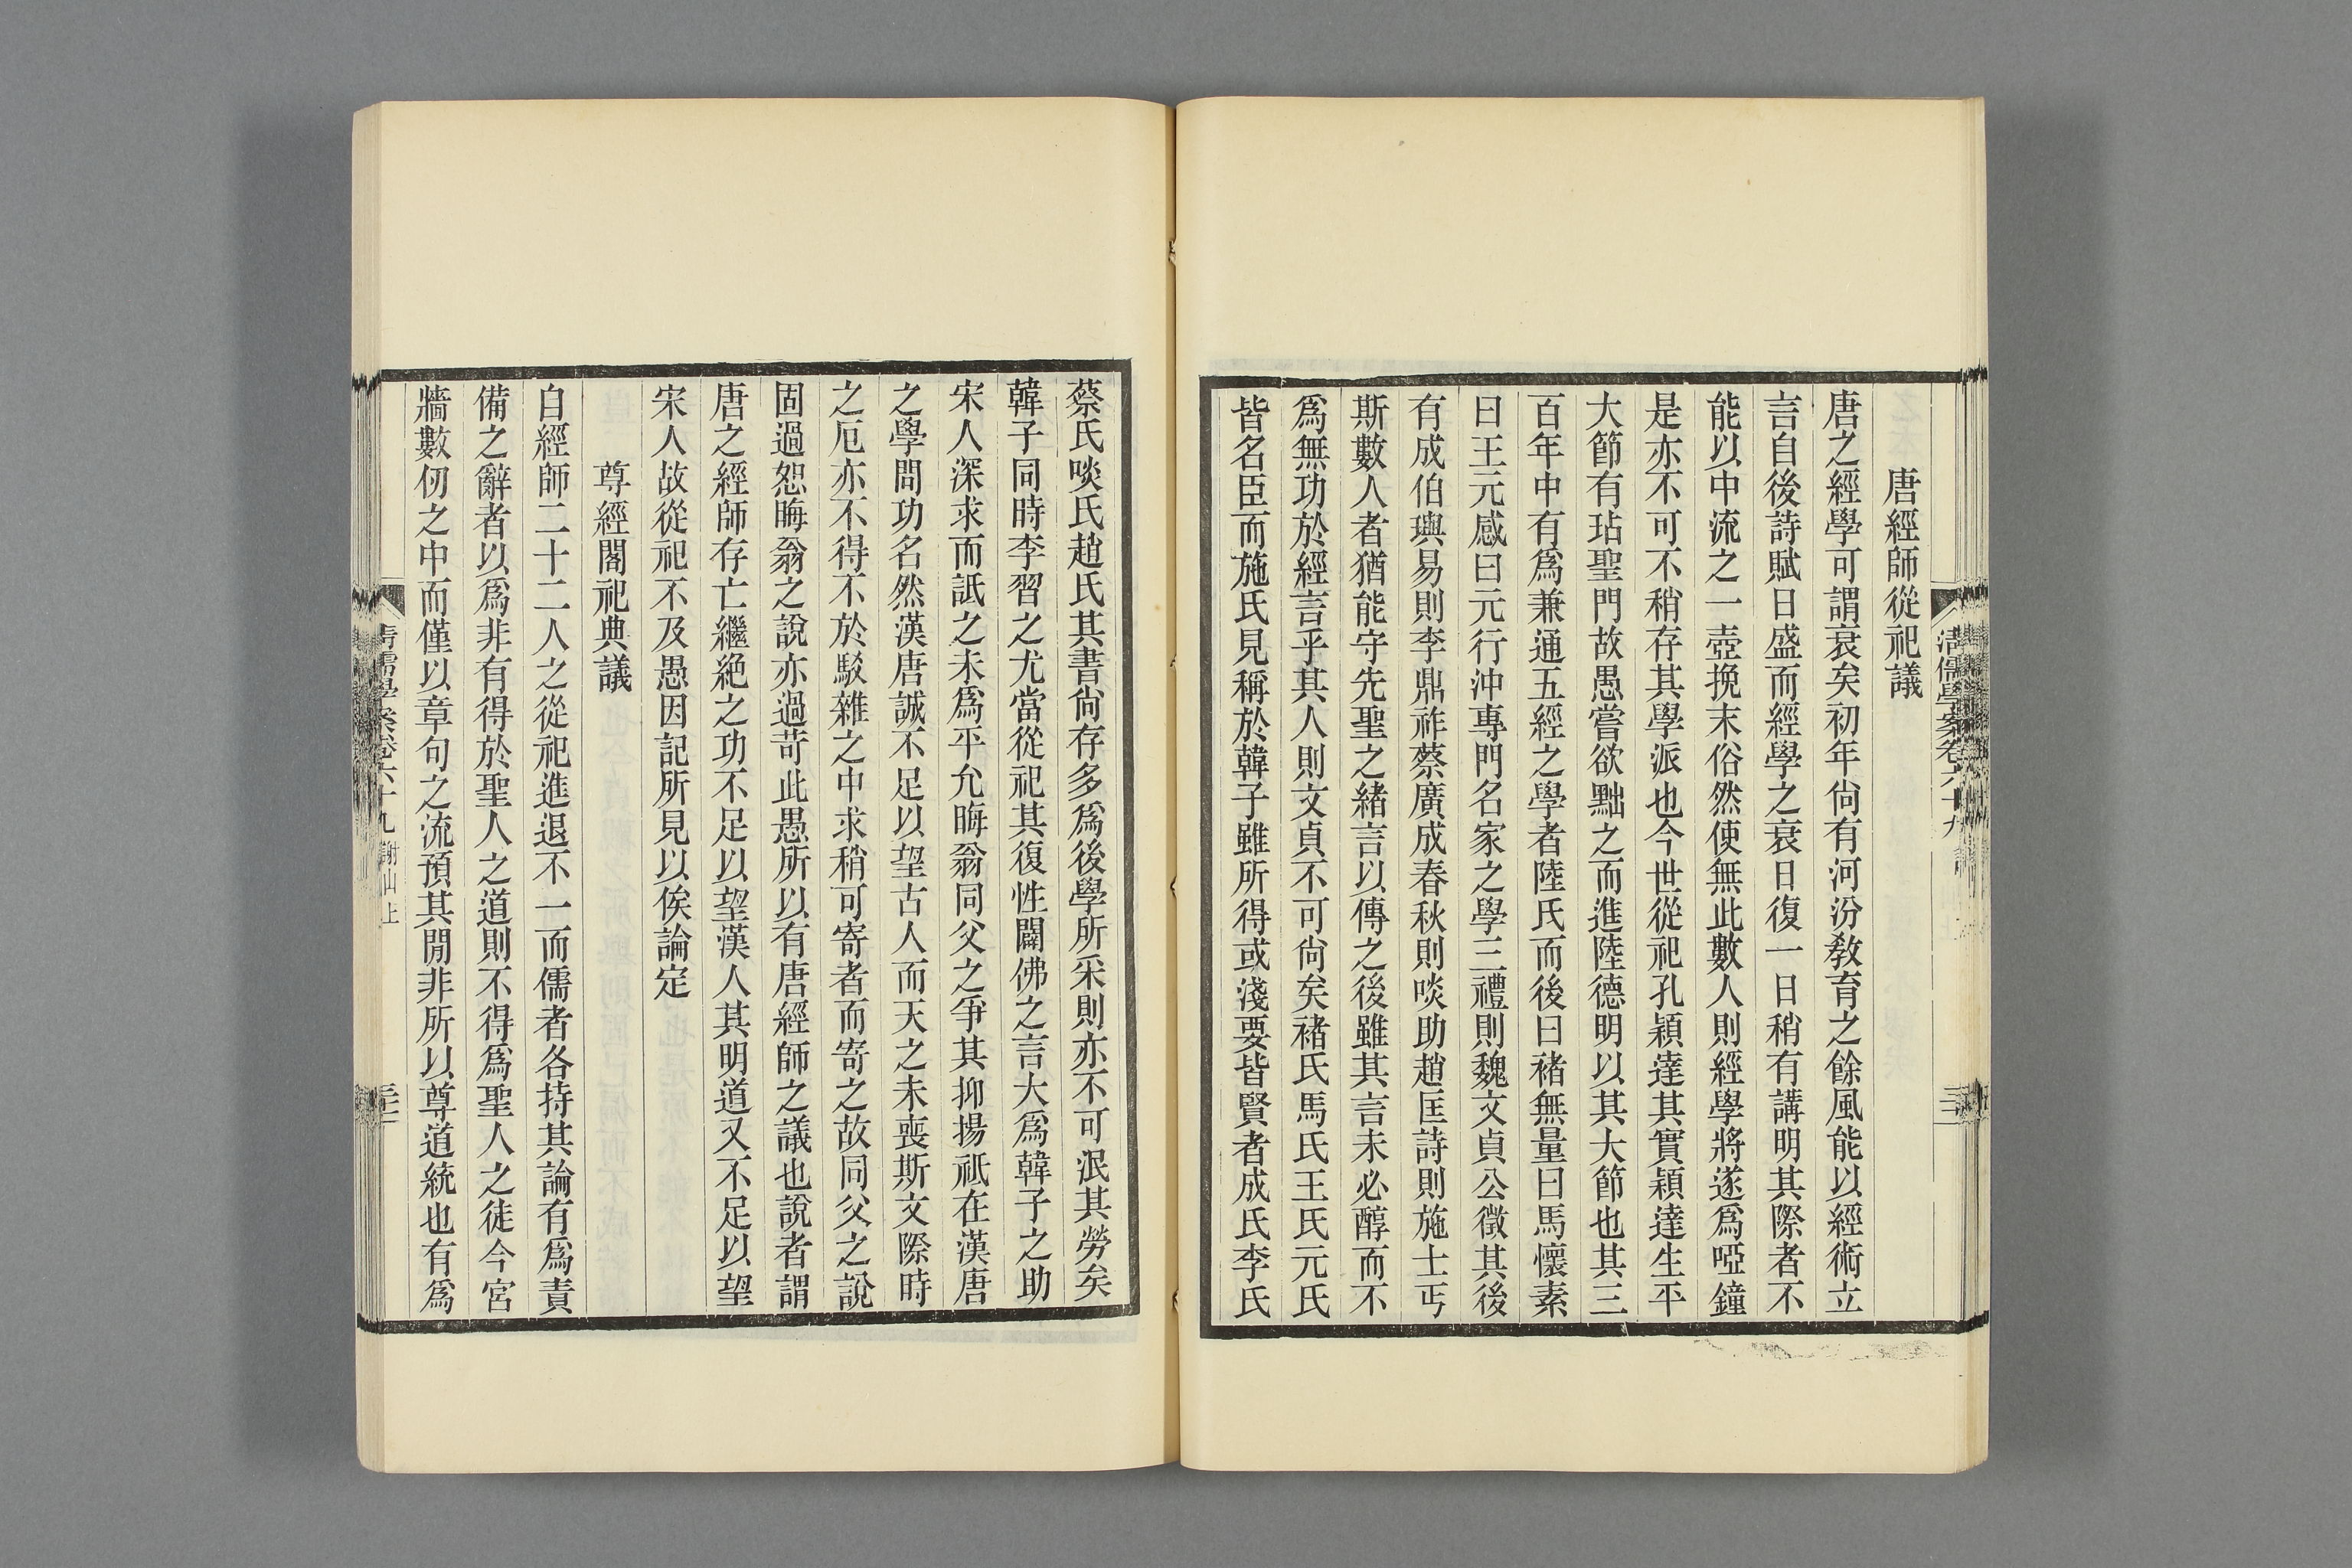 唐經師從祀議
唐之經學可謂衰矣初年尙有河汾敎育之餘風能以經術立
言自後詩賦日盛而經學之衰日復一日稍有講明其際者不
能以中流之一壺挽末俗然使無此數人則經學將遂爲啞鐘
是亦不可不稍存其學派也今世從祀孔穎達其實穎達生平
大節有玷聖門故愚嘗欲黜之而進陸德明以其大節也其三
百年中有爲兼通五經之學者陸氏而後曰褚無量曰馬懷素
曰王元感曰元行沖專門名家之學三禮則魏文貞公徵其後
有成伯璵易則李鼎祚蔡廣成春秋則啖助趙匡詩則施士丐
斯數人者猶能守先聖之緒言以傳之後雖其言未必醇而不
爲無功於經言乎其人則文貞不可尙矣褚氏馬氏王氏元氏
皆名臣而施氏見稱於韓子雖所得或淺要皆賢者成氏李氏
清儒學案卷六十九
蔡氏啖氏趙氏其書尙存多爲後學所采則亦不可泯其勞矣
韓子同時李習之尤當從祀其復性闢佛之言大爲韓子之助
宋人深求而詆之未爲平允晦翁同父之爭其抑揚祗在漢唐
之學問功名然漢唐誠不足以望古人而天之未喪斯文際時
之厄亦不得不於駁雜之中求稍可寄者而寄之故同父之說
固過恕晦翁之說亦過苛此愚所以有唐經師之議也說者謂
唐之經師存亡繼絶之功不足以望漢人其明道又不足以望
宋人故從祀不及愚因記所見以俟論定
尊經閣祀典議
自經師二十二人之從祀進退不一而儒者各持其論有爲責
備之辭者以爲非有得於聖人之道則不得爲聖人之徒今宮
牆數仞之中而僅以章句之流預其閒非所以尊道統也有爲
清儒學案卷六十九 謝山上